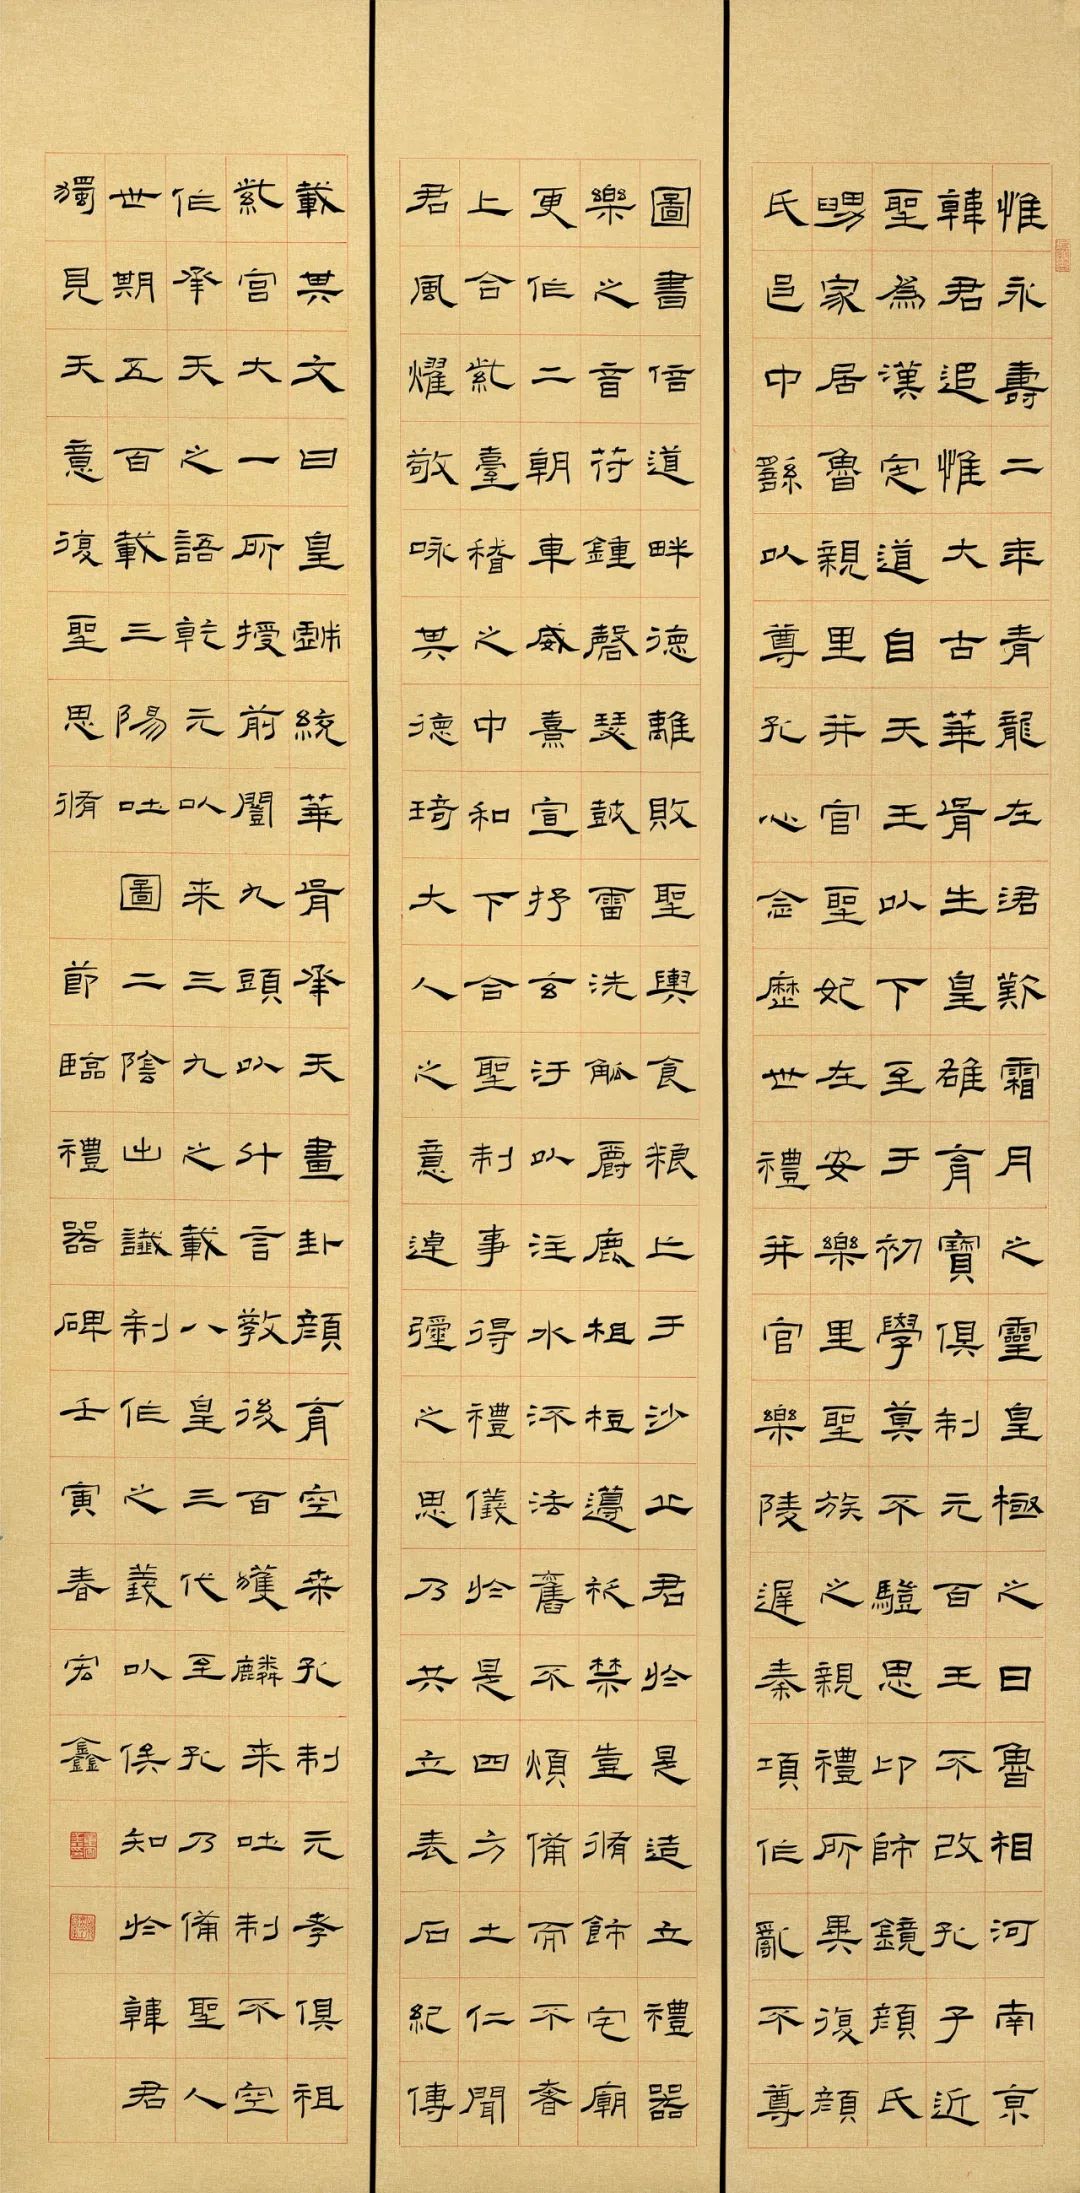 惟永壽二年青龍在涒歎霜月之靈皇極之日魯相河南京
韓君追惟大古華胥生皇雄育寶俱制元百王不改孔子近
聖為漢定道自天王以下至于初學莫不驥思卬師鏡顏氏
舅家居魯親里并官聖妃在安樂里聖族之親禮所異復顏
氏邑中繇以尊孔心念歷世禮并官樂陵遲秦項作亂不尊
圖書倍道畔德離敗聖輿食粮亡于沙丘君於是造立禮器
樂之音符鍾磬瑟鼓雷洗觚爵鹿柤梪籩柉禁壺脩飾宅廟
更作二朝車威熹宣抒玄汙以注水流法舊不煩備而不奢
上合紫臺稽之中和下合聖制事得禮儀於是四方土仁聞
君風燿敬咏其德琦大人之意逴彌之思乃共立表石紀傳
載其文曰皇戲統華胥承天畫卦顏育空桑孔制元孝俱祖
紫宮大一所授前闓九頭以什言教後百獲麟來吐制不空
作承天之語乾元以來三九之載八皇三代至孔乃備聖人
世期五百載三陽吐圖二陰出讖制作之義以俟知於韓君
獨見天意復聖思脩 節臨禮器碑壬寅春宏鑫